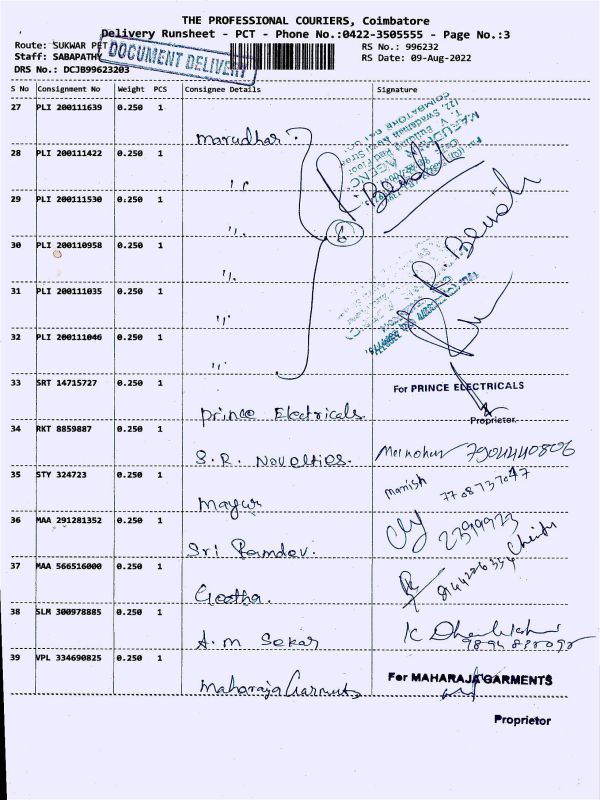 THE PROFESSIONAL COURIERS, Coimbatore
Delivery Runsheet - PCT - Phone No.:0422-3505555 - Page No.:3
Route: SUKWAR PET RS No.: 996232
Staff: SABAPATHY RS Date: 09-Aug-2022
DOCUMENT DELIVERY
DRS No.: DCJB99623203
S No Consignment No Weight PCS Consignee Details Signature
27 PLI 200111639 0.250 1 Marudhar
28 PLI 200111422 0.250 1 ''
29 PLI 200111530 0.250 1 ''
30 PLI 200110958 0.250 1 ''
31 PLI 200111035 0.250 1 ''
32 PLI 200111046 0.250 1 ''
6
33 SRT 14715727 0.250 1 Prince Electricals
For PRINCE ELECTRICALS
Proprietor
34 RKT 8859887 0.250 1 S.R. Novelties. 7904440806
35 STY 324723 0.250 1 Mayur Manish 7708737047
36 MAA 291281352 0.250 1 Sri Ramdev. 2399923
37 MAA 566516000 0.250 1 Geetha.
38 SLM 300978885 0.250 1 A.M Sekar
39 VPL 334690825 0.250 1 Maharaja Garments
For MAHARAJA GARMENTS
Proprietor